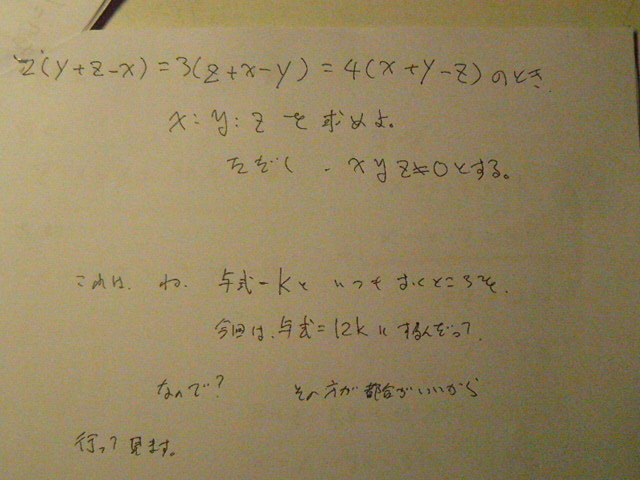 2(y+z-x)=3(z+x-y)=4(x+y-z)のとき
x:y:zを求めよ。
ただし、xyz≠0とする。
これは、ね、与式=kといつもおくところを、
今回は、与式=12kにするんだって。
なんで? その方が都合がいいから
行って見ます。